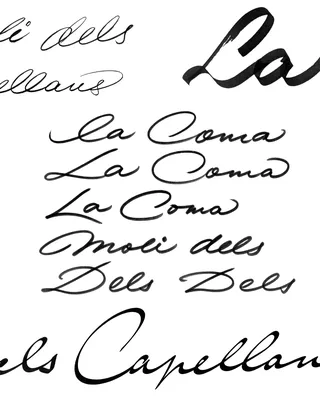 li dels
La
ellans
la Coma
La Coma
La Coma
Moli dels
Dels Dels
els Capellan